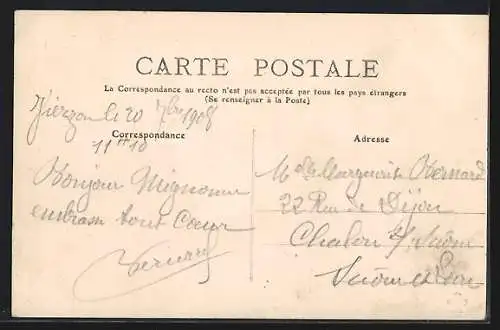 CARTE POSTALE
La Correspondance au recto n'est pas acceptée par tous les pays étrangers
(Se renseigner à la Poste)
Vierzon le 20 7bre 1908
11 H 10
Correspondance
Bonjour Mignonne
embrasse tout Cœur
Bernard
Adresse
Melle Marguerite Bernard
22 Rue de Dijon
Chalon s/ Saône
Saône et Loire